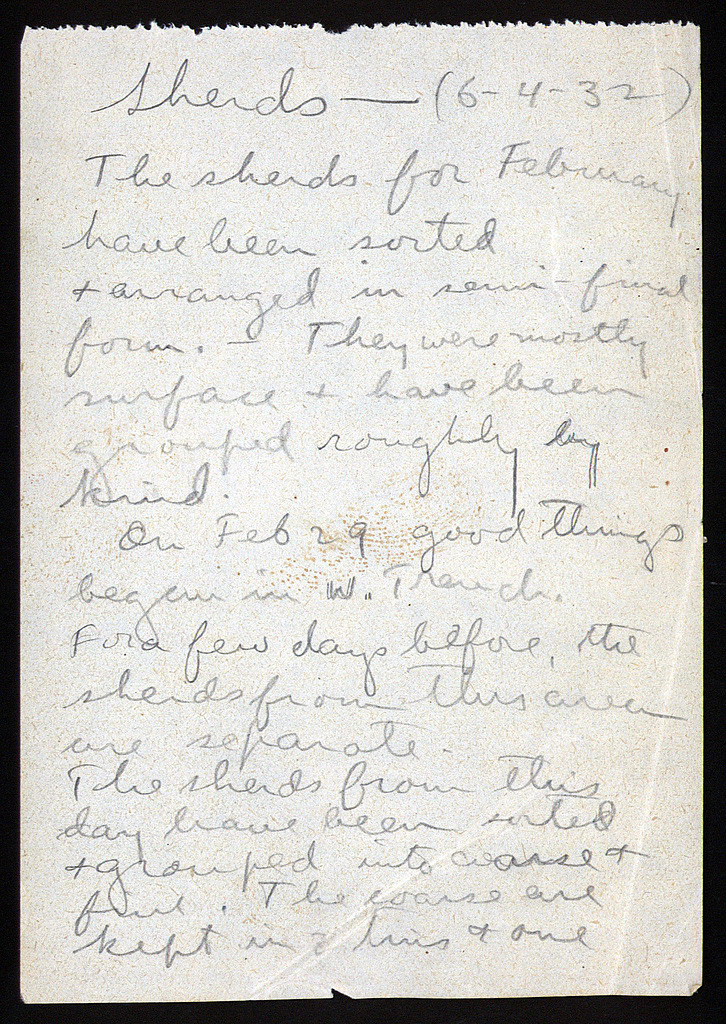 Sherds — (6-4-32)
The sherds for February
have been sorted
+ arranged in semi-final
form. — They were mostly
surface + have been
grouped roughly by
kind.
On Feb 29 good things
began in W. Trench.
For a few days before, the
sherds from this area
are separate.
The sherds from this
day have been sorted
+ grouped into coarse +
fine. The coarse are
kept in 2 tins + one